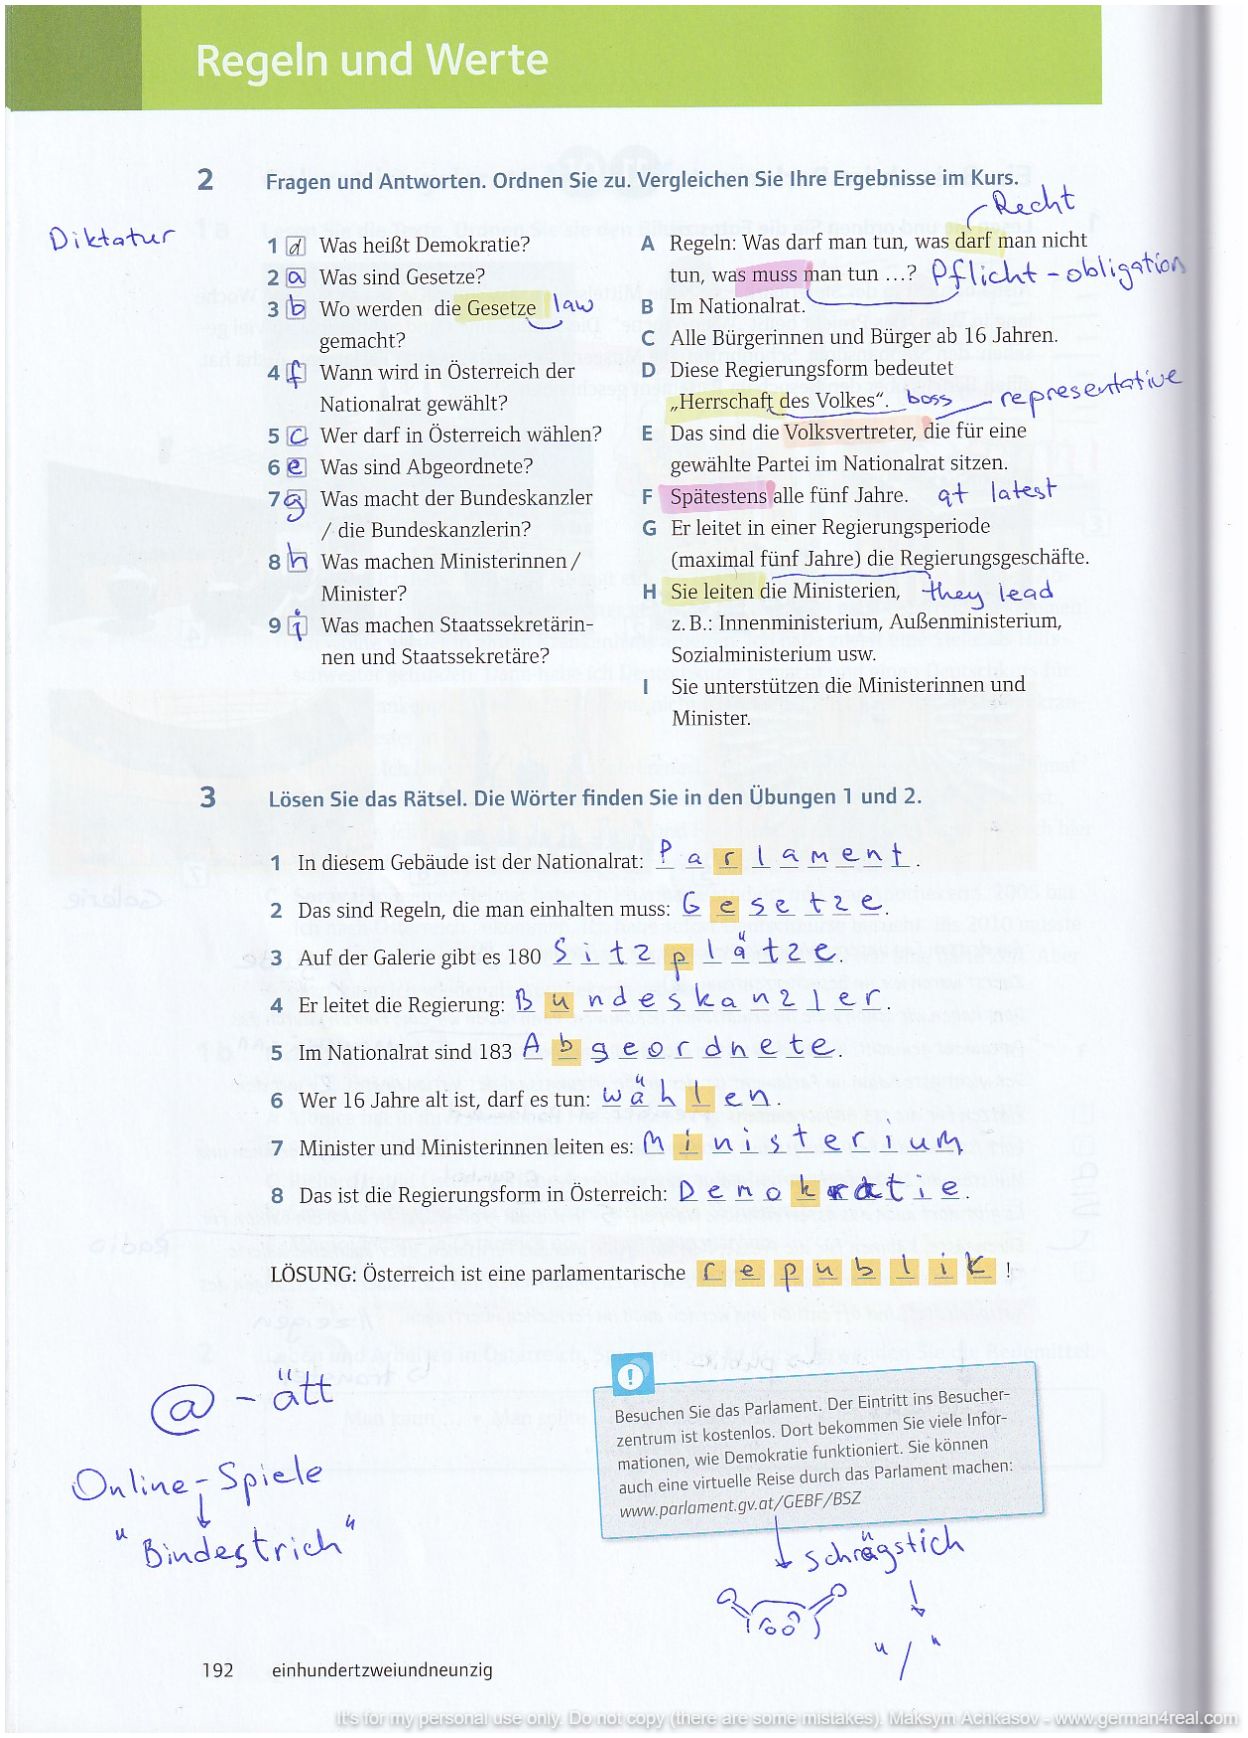 Regeln und Werte
2 Fragen und Antworten. Ordnen Sie zu. Vergleichen Sie Ihre Ergebnisse im Kurs.
Diktatur
1 d Was heißt Demokratie?
2 a Was sind Gesetze?
3 b Wo werden die Gesetze law
gemacht?
4 f Wann wird in Österreich der
Nationalrat gewählt?
5 c Wer darf in Österreich wählen?
6 e Was sind Abgeordnete?
7 g Was macht der Bundeskanzler
/ die Bundeskanzlerin?
8 h Was machen Ministerinnen /
Minister?
9 i Was machen Staatssekretärin-
nen und Staatssekretäre?
Recht
A Regeln: Was darf man tun, was darf man nicht
tun, was muss man tun ...? Pflicht - obligation
B Im Nationalrat.
C Alle Bürgerinnen und Bürger ab 16 Jahren.
D Diese Regierungsform bedeutet
„Herrschaft des Volkes“. boss representative
E Das sind die Volksvertreter, die für eine
gewählte Partei im Nationalrat sitzen.
F Spätestens alle fünf Jahre. at latest
G Er leitet in einer Regierungsperiode
(maximal fünf Jahre) die Regierungsgeschäfte.
H Sie leiten die Ministerien, they lead
z. B.: Innenministerium, Außenministerium,
Sozialministerium usw.
I Sie unterstützen die Ministerinnen und
Minister.
3 Lösen Sie das Rätsel. Die Wörter finden Sie in den Übungen 1 und 2.
1 In diesem Gebäude ist der Nationalrat: Parlament.
2 Das sind Regeln, die man einhalten muss: Gesetze.
3 Auf der Galerie gibt es 180 Sitzplätze.
4 Er leitet die Regierung: Bundeskanzler.
5 Im Nationalrat sind 183 Abgeordnete.
6 Wer 16 Jahre alt ist, darf es tun: wählen.
7 Minister und Ministerinnen leiten es: Ministerium
8 Das ist die Regierungsform in Österreich: Demokratie.
LÖSUNG: Österreich ist eine parlamentarische republik !
@ - ätt
Online-Spiele
"Bindestrich"
!
Besuchen Sie das Parlament. Der Eintritt ins Besucher-
zentrum ist kostenlos. Dort bekommen Sie viele Infor-
mationen, wie Demokratie funktioniert. Sie können
auch eine virtuelle Reise durch das Parlament machen:
www.parlament.gv.at/GEBF/BSZ
schrägstich
"/"
192 einhundertzweiundneunzig
It's for my personal use only. Do not copy (there are some mistakes). Maksym Achkasov - www.german4real.com